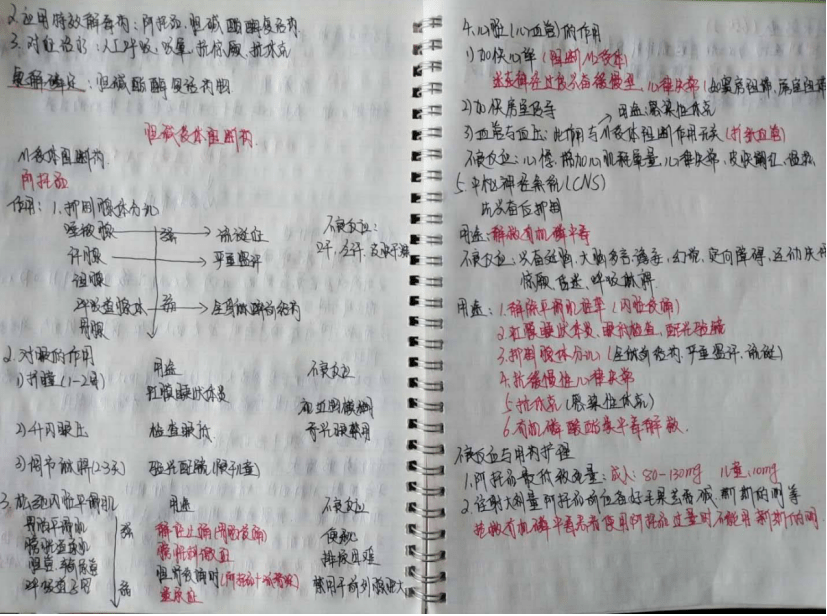 2.应用特效解毒药:阿托品、胆碱酯酶复活药
3.对症治疗:人工呼吸、吸氧、抗惊厥、抗休克
氯解磷定:胆碱酯酶复活药物
胆碱受体阻断药
M受体阻断药
阿托品
作用:1.抑制腺体分泌
唾液腺 强 流涎症
汗腺 严重盗汗
泪腺
呼吸道腺体 弱 全身麻醉前给药
胃腺
不良反应:
口干、乏汗、皮肤干燥
2.对眼的作用 用途 不良反应
1)扩瞳(1-2周) 虹膜睫状体炎 视近物模糊
2)升内眼压 检查眼底 青光眼禁用
3)调节麻痹(2-3天) 验光配镜(限于儿童)
3.松弛内脏平滑肌 用途 不良反应
胃肠平滑肌 强 解痉止痛(内脏绞痛) 便秘
膀胱逼尿肌 膀胱刺激征 排尿困难
胆管、输尿管 胆肾绞痛时(阿托品+哌替啶) 禁用于前列腺肥大
呼吸道、子宫 弱 遗尿症
4.心脏(心血管)的作用
1)加快心率(阻断M2受体)
迷走神经过度兴奋缓慢型心律失常(如窦房阻滞,房室阻滞
2)加快房室传导 用途:感染性休克
3)血管与血压:此作用与M受体阻断作用无关(扩张血管)
不良反应:心悸、增加心肌耗氧量,心律失常、皮肤潮红、
5.中枢神经系统(CNS)
先兴奋后抑制
用途:解救有机磷中毒
不良反应:兴奋烦躁、大脑多言、谵妄、幻觉、定向障碍、运动失
惊厥、昏迷、呼吸麻痹.
用途:1.解除平滑肌痉挛(内脏绞痛)
2.虹膜睫状体炎、眼底检查、验光配镜
3.抑制腺体分泌(全麻前给药、严重盗汗、流涎)
4.抗缓慢性心律失常
5.抗休克(感染性休克)
6.有机磷酸酯类中毒解救.
不良反应与用药护理
1.阿托品最低致死量:成人:80-130mg 儿童:10mg
2.注射大剂量阿托品前应备好毛果芸香碱、新斯的明等
抢救有机磷中毒患者使用阿托品过量时不能用新斯的明.